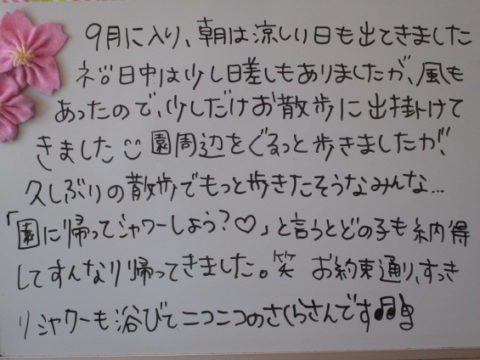 9月に入り、朝は涼しい日も出てきました
ネ。日中は少し日差しもありましたが、風も
あったので、少しだけお散歩に出掛けて
きました 園周辺をぐるっと歩きましたが!
久しぶりの散歩でもっと歩きたそうなみんな...
「園に帰ってシャワーしよう?♡」と言うとどの子も納得
してすんなり帰ってきました。笑 お約束通り、すっき
りシャワーも浴びてニコニコのさくらさんです♫♪